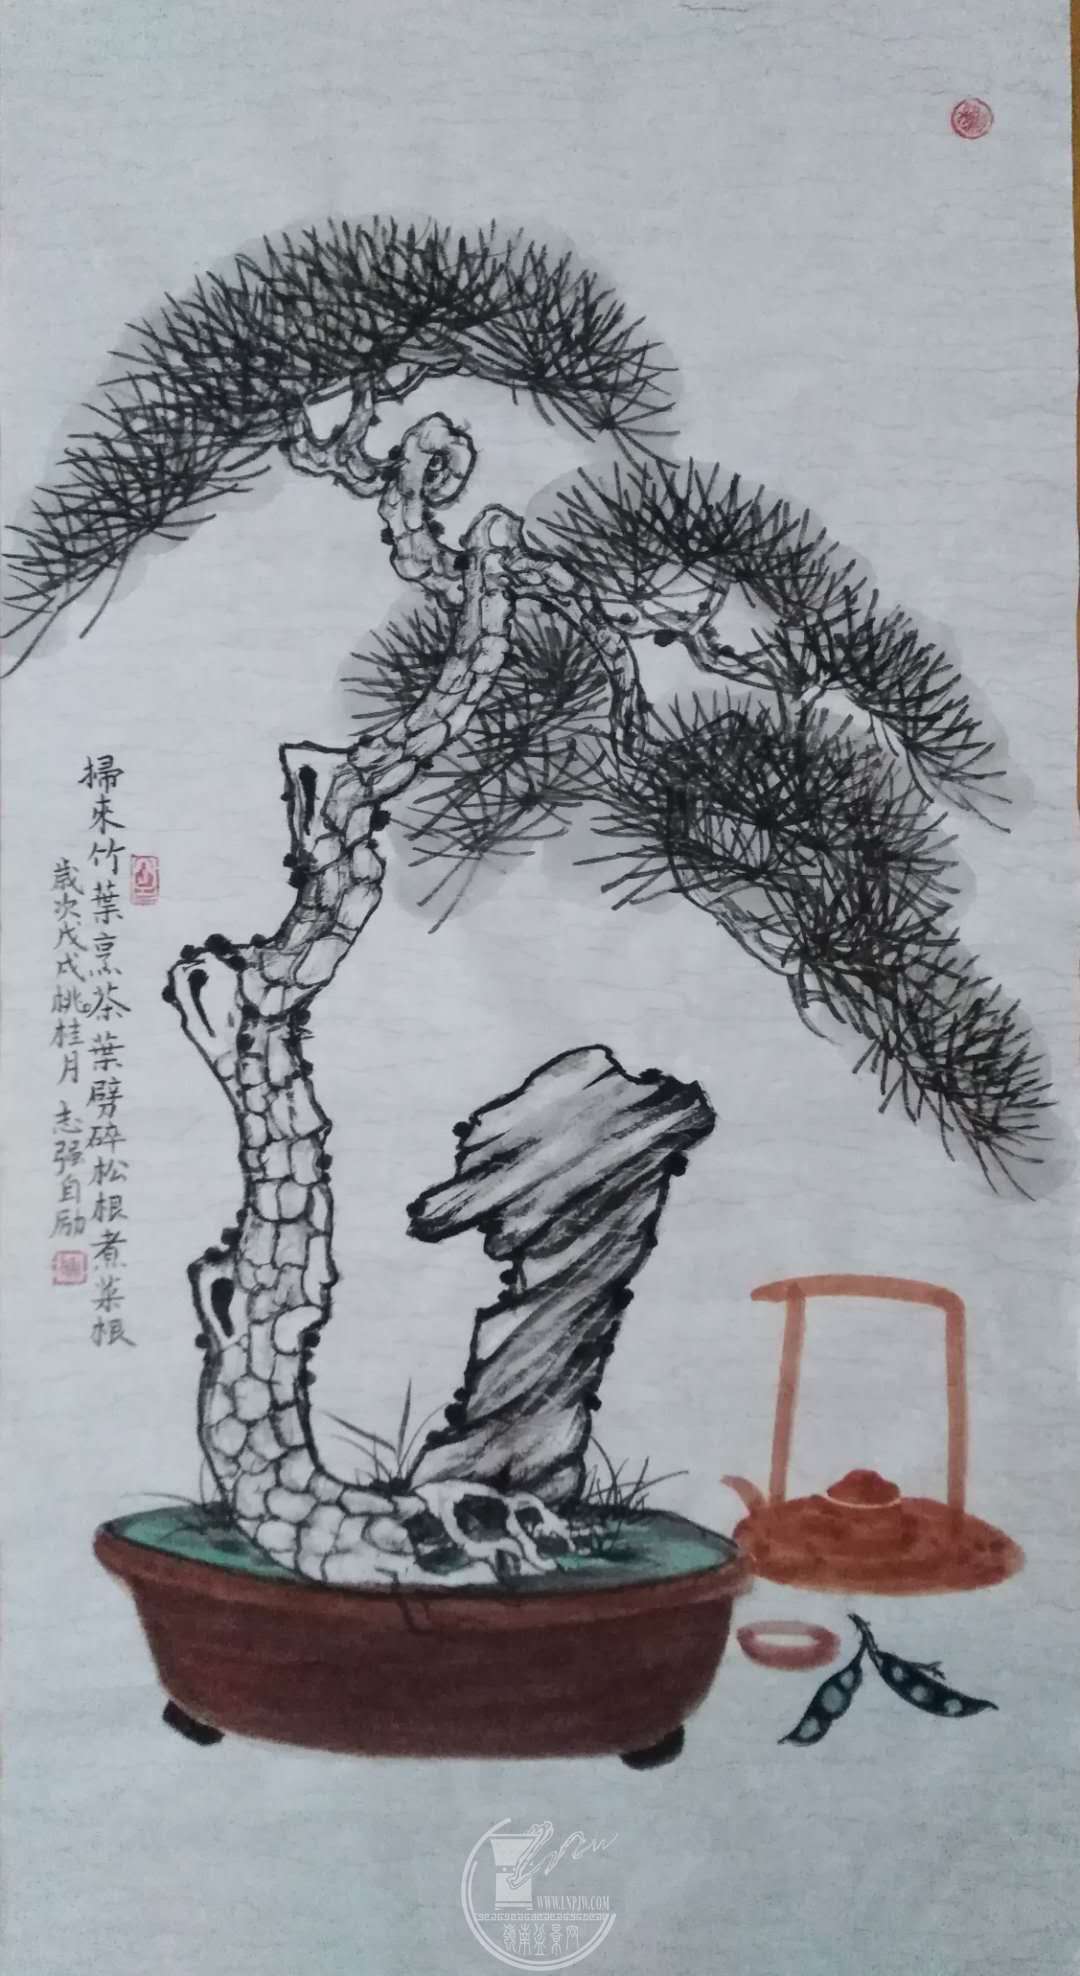 掃來竹葉烹茶葉劈碎松根煮菜根
歲次戊戌桃桂月 志强自励
WWW.LNPJW.COM
嶺南盆景网